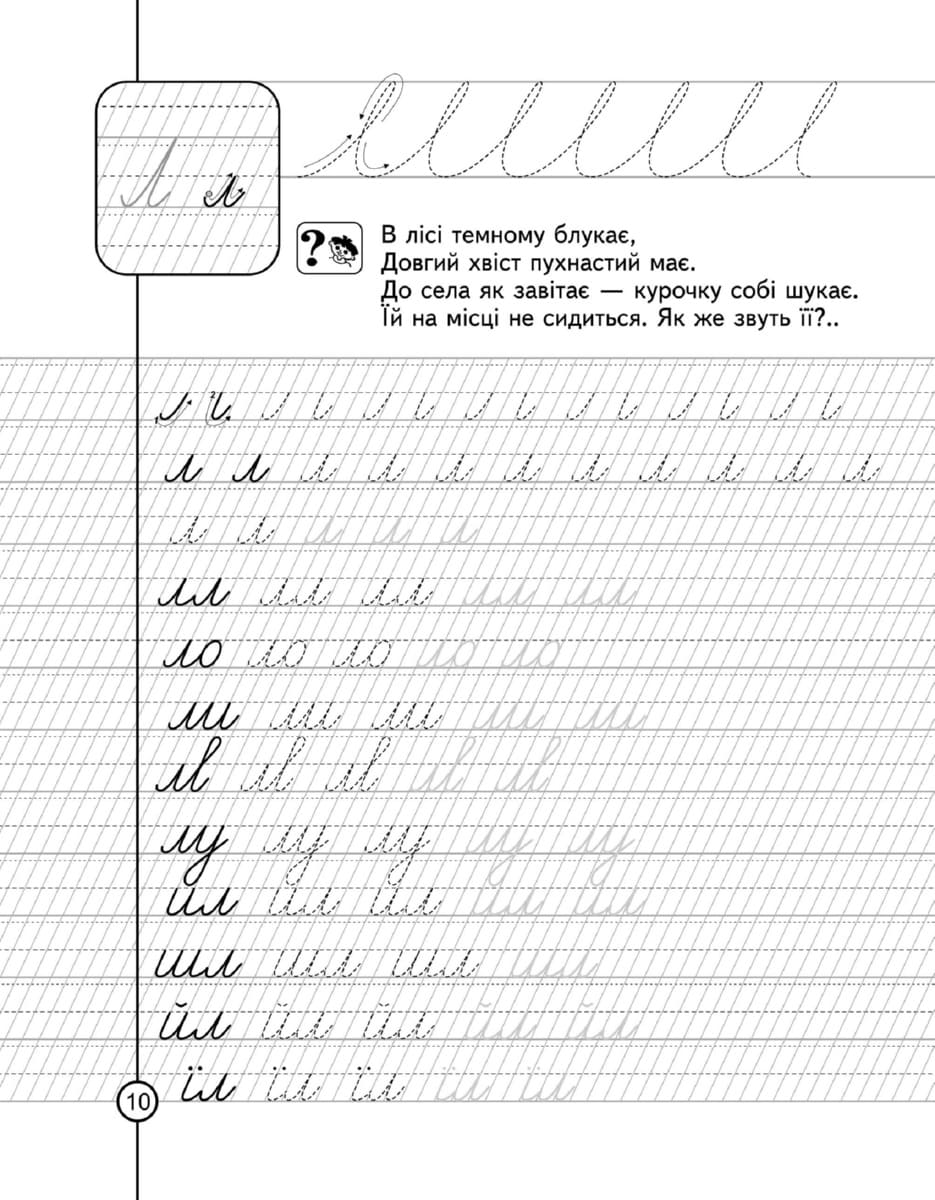 Л л
?
В лісі темному блукає,
Довгий хвіст пухнастий має.
До села як завітає — курочку собі шукає.
Їй на місці не сидиться. Як же звуть її?..
л л л л л л л л л л л
л л л л л
лл лл лл лл лл
ло ло ло ло ло
ли ли ли ли ли
лв лв лв лв лв
лу лу лу лу лу
ил ил ил ил ил
шл шл шл шл
йл йл йл йл йл
їл їл їл їл їл
10